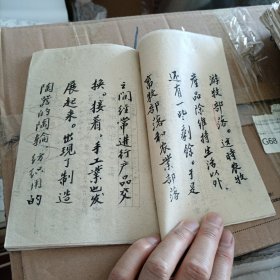 游牧部落。这时农牧
产品除维持生活以外，
还有一些剩余。于是
畜牧部落和农业部落
之间经常进行产品交
换。接着，手工业也发
展起来。出现了制造
陶器的陶轮、纺织用的
G68